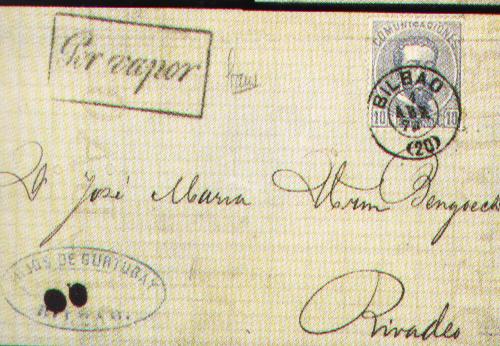 Por vapor
COMUNICACIONES
10 10
BILBAO
1
ABR
73
(20)
D. José Maria Bengoech
HIJOS DE GURTUBAY
BILBAO.
Rivadeo